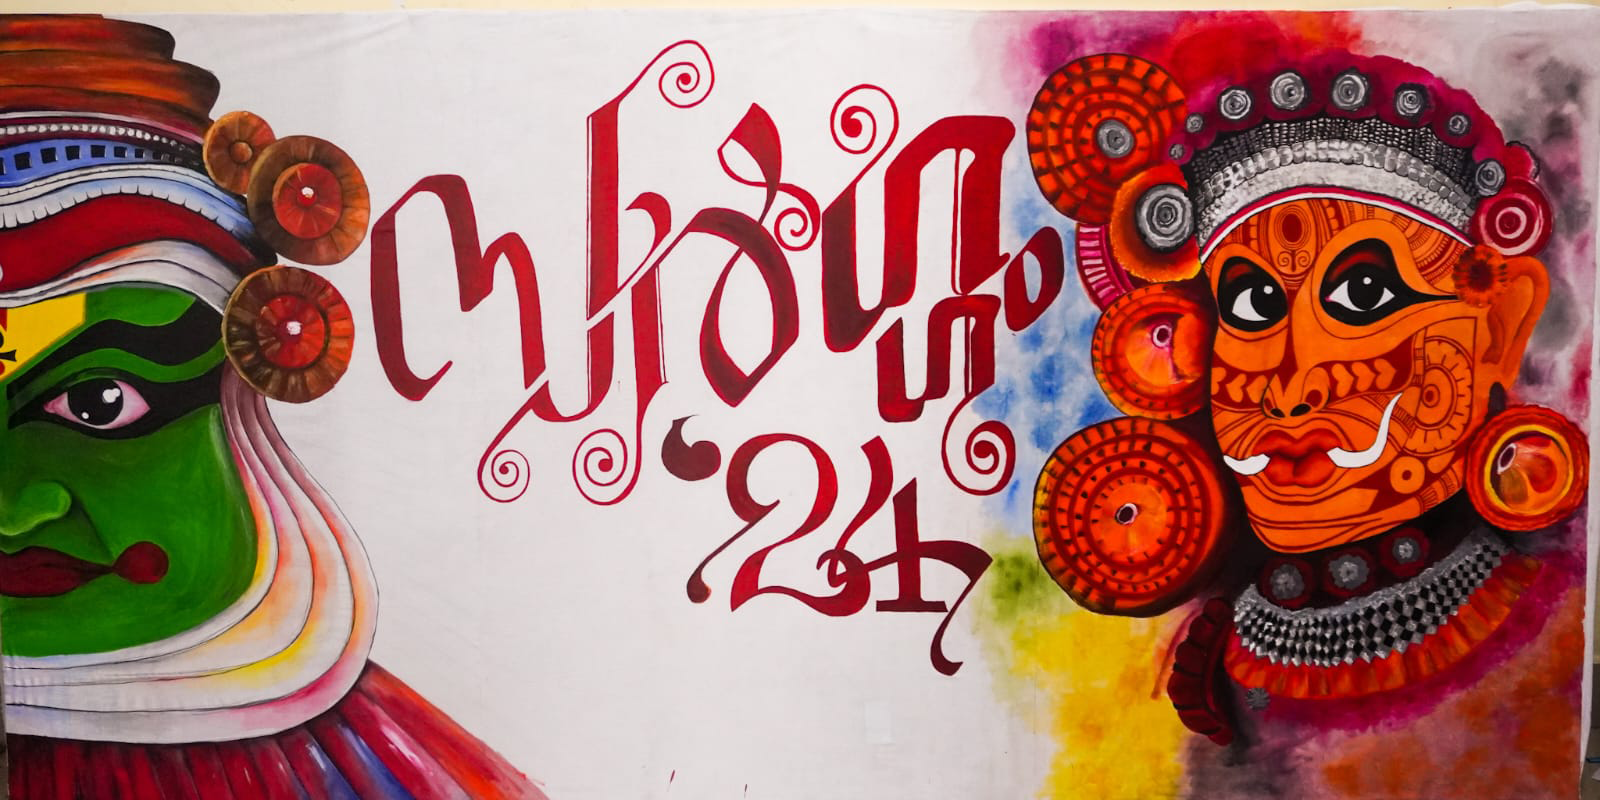 സർഗ്ഗം
‘24